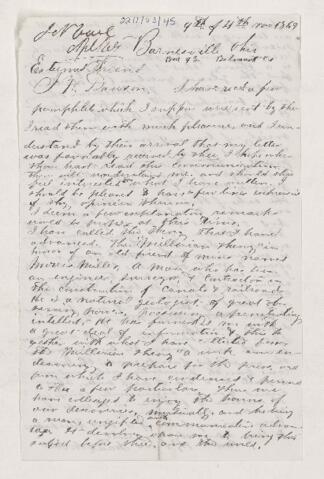 J N Cuel
Barnesville Ohio
Box 92 Belmont Co
Esteemed Friend
J. W. Dawson. I have rec'd a few
pamphlets which I suppose were sent by thee
I read them with much pleasure, and I un-
derstand by their arrival that my letter
was favorably received by thee. I hope when
thou hast read this communication
thou will understand me, and should thou
feel interested in what I have written, I
should be pleased to have a few lines expressive
of thy opinion thereon.
I deem a few explanatory remarks
I have called the Theory that I have
advanced, The "Millerian Theory" in
honor of an old friend of mine named
Morris Miller, A man who has been
an engineer, surveyor & contractor in
the construction of canals & railroads
He is a natural geologist of great ob-
serving powers, possessing a penetrating
intellect. He has furnished me with
a great deal of information, & this to-
gether with what I have collected forms
the Millerian Theory, a work I am en-
deavoring to prepare for the press, and
from which I have condensed & penned
to thee a few particulars. Thus we
have colleagued to enjoy the honors of
our discoveries, mutually, and he being
a man, ungifted with communicative advan-
tages to bring this
subject before thee, and the world.